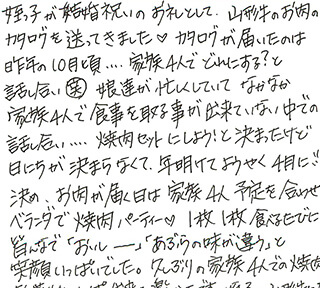 姪っ子が結婚祝いのお礼として、山形牛のお肉の
カタログを送ってきました♡ カタログが届いたのは
昨年の10月頃‥‥ 家族4人でどれにする?と
話し合い 娘達が忙しくしていて なかなか
家族4人で食事を取る事が出来ていない中での
話し合い‥‥ 焼肉セットにしよう!と決まったけど
日にちが決まらなくて、年明けてようやく4月に
決め、お肉が届く日は 家族4人 予定を合わせ
ベランダで焼肉パーティー♡ 1枚1枚食べるたびに
皆んなで「おいしー」「あぶらの味が違う」と
笑顔いっぱいでした。久しぶりの家族4人での焼肉